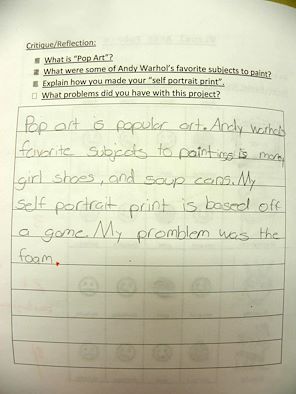 Critique/Reflection:
What is "Pop Art"?
What were some of Andy Warhol's favorite subjects to paint?
Explain how you made your "self portrait print".
What problems did you have with this project?
Pop art is popular art. Andy Warhols
feivorite subjects to paintings is money
girl shoes, and soup cans. My
self portrait print is based off
a game. My promblem was the
foam.